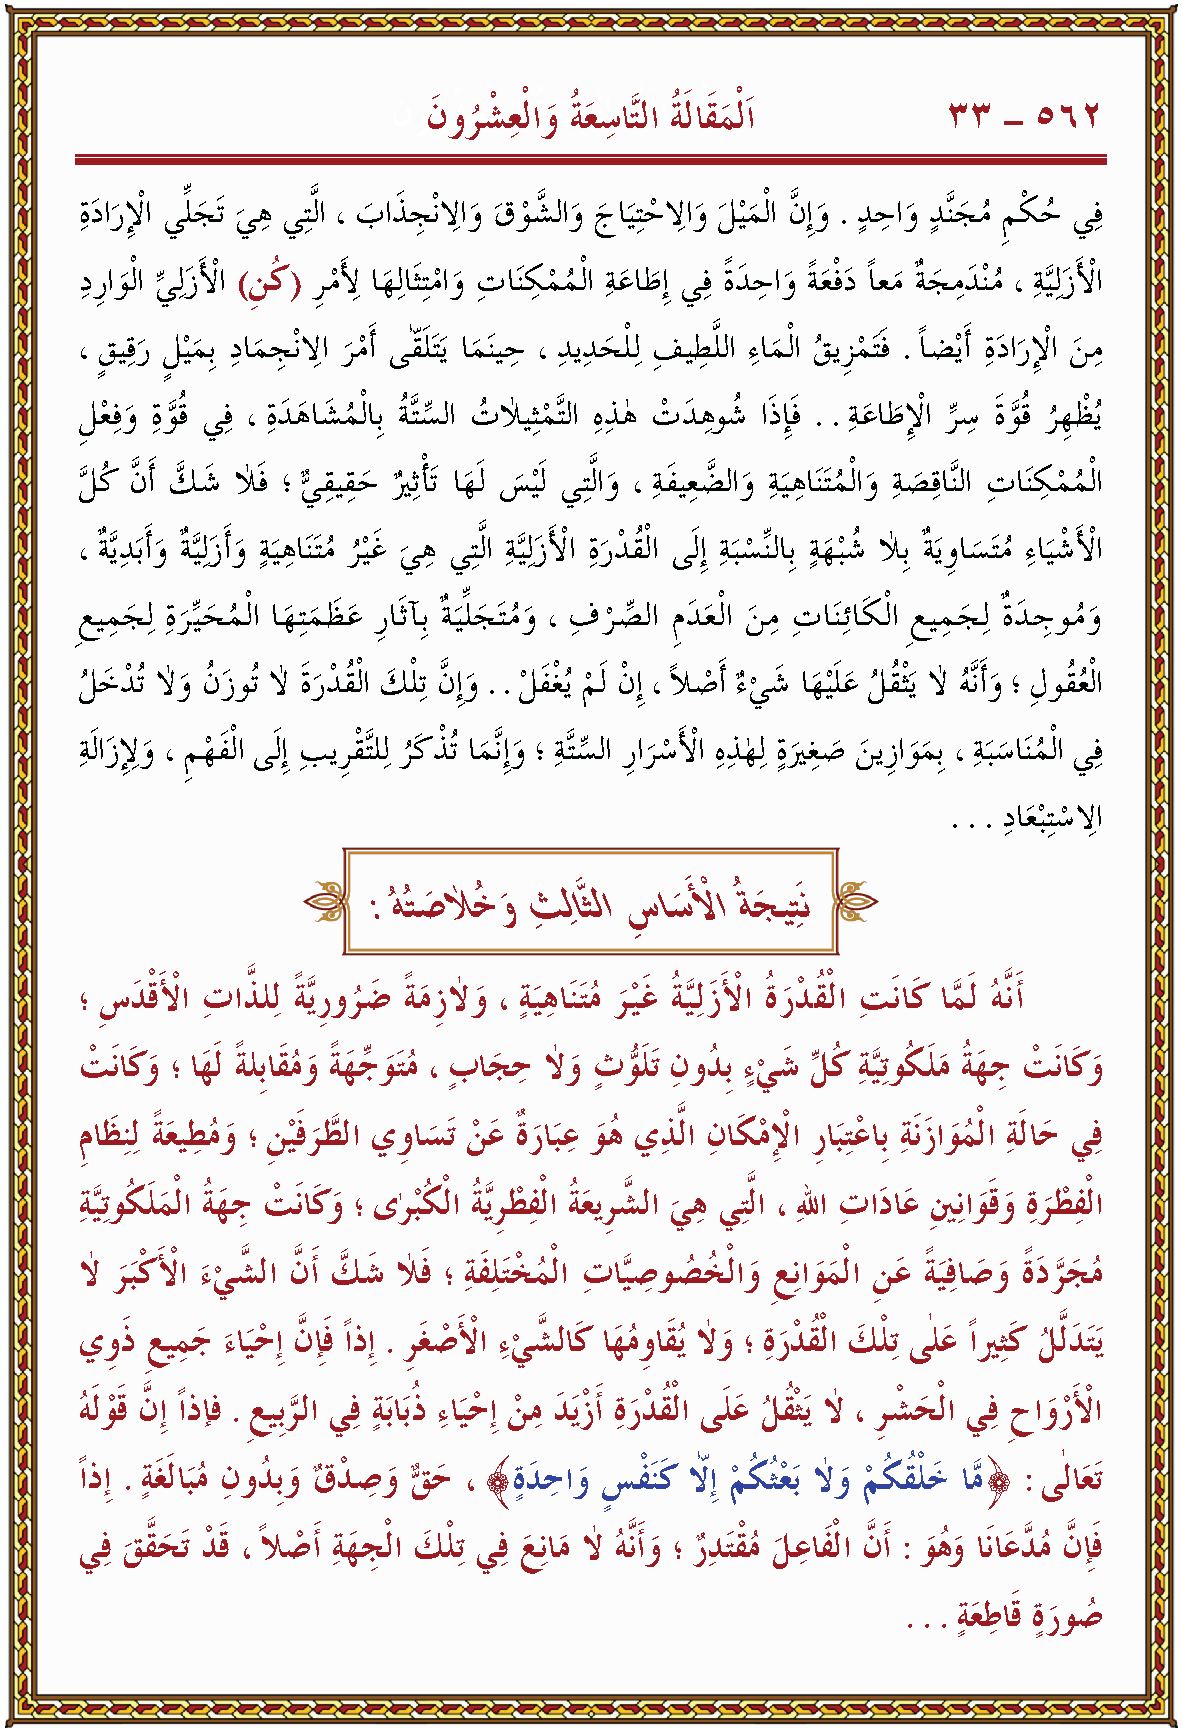 ٥٦٢ ـ ٣٣ اَلْمَقَالَةُ التَّاسِعَةُ وَالْعِشْرُونَ
فِي حُكْمِ مُجَنَّدٍ وَاحِدٍ . وَإِنَّ الْمَيْلَ وَالِاحْتِيَاجَ وَالشَّوْقَ وَالِانْجِذَابَ ، الَّتِي هِيَ تَجَلِّي الْإِرَادَةِ
الْأَزَلِيَّةِ ، مُنْدَمِجَةٌ مَعاً دَفْعَةً وَاحِدَةً فِي إِطَاعَةِ الْمُمْكِنَاتِ وَامْتِثَالِهَا لِأَمْرِ (كُنِ) الْأَزَلِيِّ الْوَارِدِ
مِنَ الْإِرَادَةِ أَيْضاً . فَتَمْزِيقُ الْمَاءِ اللَّطِيفِ لِلْحَدِيدِ ، حِينَمَا يَتَلَقَّى أَمْرَ الِانْجِمَادِ بِمَيْلٍ رَقِيقٍ ،
يُظْهِرُ قُوَّةَ سِرِّ الْإِطَاعَةِ . . فَإِذَا شُوهِدَتْ هٰذِهِ التَّمْثِيلَاتُ السِّتَّةُ بِالْمُشَاهَدَةِ ، فِي قُوَّةِ وَفِعْلِ
الْمُمْكِنَاتِ النَّاقِصَةِ وَالْمُتَنَاهِيَةِ وَالضَّعِيفَةِ ، وَالَّتِي لَيْسَ لَهَا تَأْثِيرٌ حَقِيقِيٌّ ؛ فَلَا شَكَّ أَنَّ كُلَّ
الْأَشْيَاءِ مُتَسَاوِيَةٌ بِلَا شُبْهَةٍ بِالنِّسْبَةِ إِلَى الْقُدْرَةِ الْأَزَلِيَّةِ الَّتِي هِيَ غَيْرُ مُتَنَاهِيَةٍ وَأَزَلِيَّةٌ وَأَبَدِيَّةٌ ،
وَمُوجِدَةٌ لِجَمِيعِ الْكَائِنَاتِ مِنَ الْعَدَمِ الصِّرْفِ ، وَمُتَجَلِّيَةٌ بِآثَارِ عَظَمَتِهَا الْمُحَيِّرَةِ لِجَمِيعِ
الْعُقُولِ ؛ وَأَنَّهُ لَا يَثْقُلُ عَلَيْهَا شَيْءٌ أَصْلاً ، إِنْ لَمْ يُغْفَلْ . . وَإِنَّ تِلْكَ الْقُدْرَةَ لَا تُوزَنُ وَلَا تُدْخَلُ
فِي الْمُنَاسَبَةِ ، بِمَوَازِينَ صَغِيرَةٍ لِهٰذِهِ الْأَسْرَارِ السِّتَّةِ ؛ وَإِنَّمَا تُذْكَرُ لِلتَّقْرِيبِ إِلَى الْفَهْمِ ، وَلِإِزَالَةِ
الِاسْتِبْعَادِ . . .
نَتِيجَةُ الْأَسَاسِ الثَّالِثِ وَخُلَاصَتُهُ :
أَنَّهُ لَمَّا كَانَتِ الْقُدْرَةُ الْأَزَلِيَّةُ غَيْرَ مُتَنَاهِيَةٍ ، وَلَازِمَةً ضَرُورِيَّةً لِلذَّاتِ الْأَقْدَسِ ؛
وَكَانَتْ جِهَةُ مَلَكُوتِيَّةِ كُلِّ شَيْءٍ بِدُونِ تَلَوُّثٍ وَلَا حِجَابٍ ، مُتَوَجِّهَةً وَمُقَابِلَةً لَهَا ؛ وَكَانَتْ
فِي حَالَةِ الْمُوَازَنَةِ بِاعْتِبَارِ الْإِمْكَانِ الَّذِي هُوَ عِبَارَةٌ عَنْ تَسَاوِي الطَّرَفَيْنِ ؛ وَمُطِيعَةً لِنِظَامِ
الْفِطْرَةِ وَقَوَانِينِ عَادَاتِ اللهِ ، الَّتِي هِيَ الشَّرِيعَةُ الْفِطْرِيَّةُ الْكُبْرٰى ؛ وَكَانَتْ جِهَةُ الْمَلَكُوتِيَّةِ
مُجَرَّدَةً وَصَافِيَةً عَنِ الْمَوَانِعِ وَالْخُصُوصِيَّاتِ الْمُخْتَلِفَةِ ؛ فَلَا شَكَّ أَنَّ الشَّيْءَ الْأَكْبَرَ لَا
يَتَدَلَّلُ كَثِيراً عَلٰى تِلْكَ الْقُدْرَةِ ؛ وَلَا يُقَاوِمُهَا كَالشَّيْءِ الْأَصْغَرِ . إِذاً فَإِنَّ إِحْيَاءَ جَمِيعِ ذَوِي
الْأَرْوَاحِ فِي الْحَشْرِ ، لَا يَثْقُلُ عَلَى الْقُدْرَةِ أَزْيَدَ مِنْ إِحْيَاءِ ذُبَابَةٍ فِي الرَّبِيعِ . فإذاً إِنَّ قَوْلَهُ
تَعَالٰى : ﴿مَّا خَلْقُكُمْ وَلَا بَعْثُكُمْ إِلَّا كَنَفْسٍ وَاحِدَةٍ﴾ ، حَقٌّ وَصِدْقٌ وَبِدُونِ مُبَالَغَةٍ . إِذاً
فَإِنَّ مُدَّعَانَا وَهُوَ : أَنَّ الْفَاعِلَ مُقْتَدِرٌ ؛ وَأَنَّهُ لَا مَانِعَ فِي تِلْكَ الْجِهَةِ أَصْلاً ، قَدْ تَحَقَّقَ فِي
صُورَةٍ قَاطِعَةٍ . . .